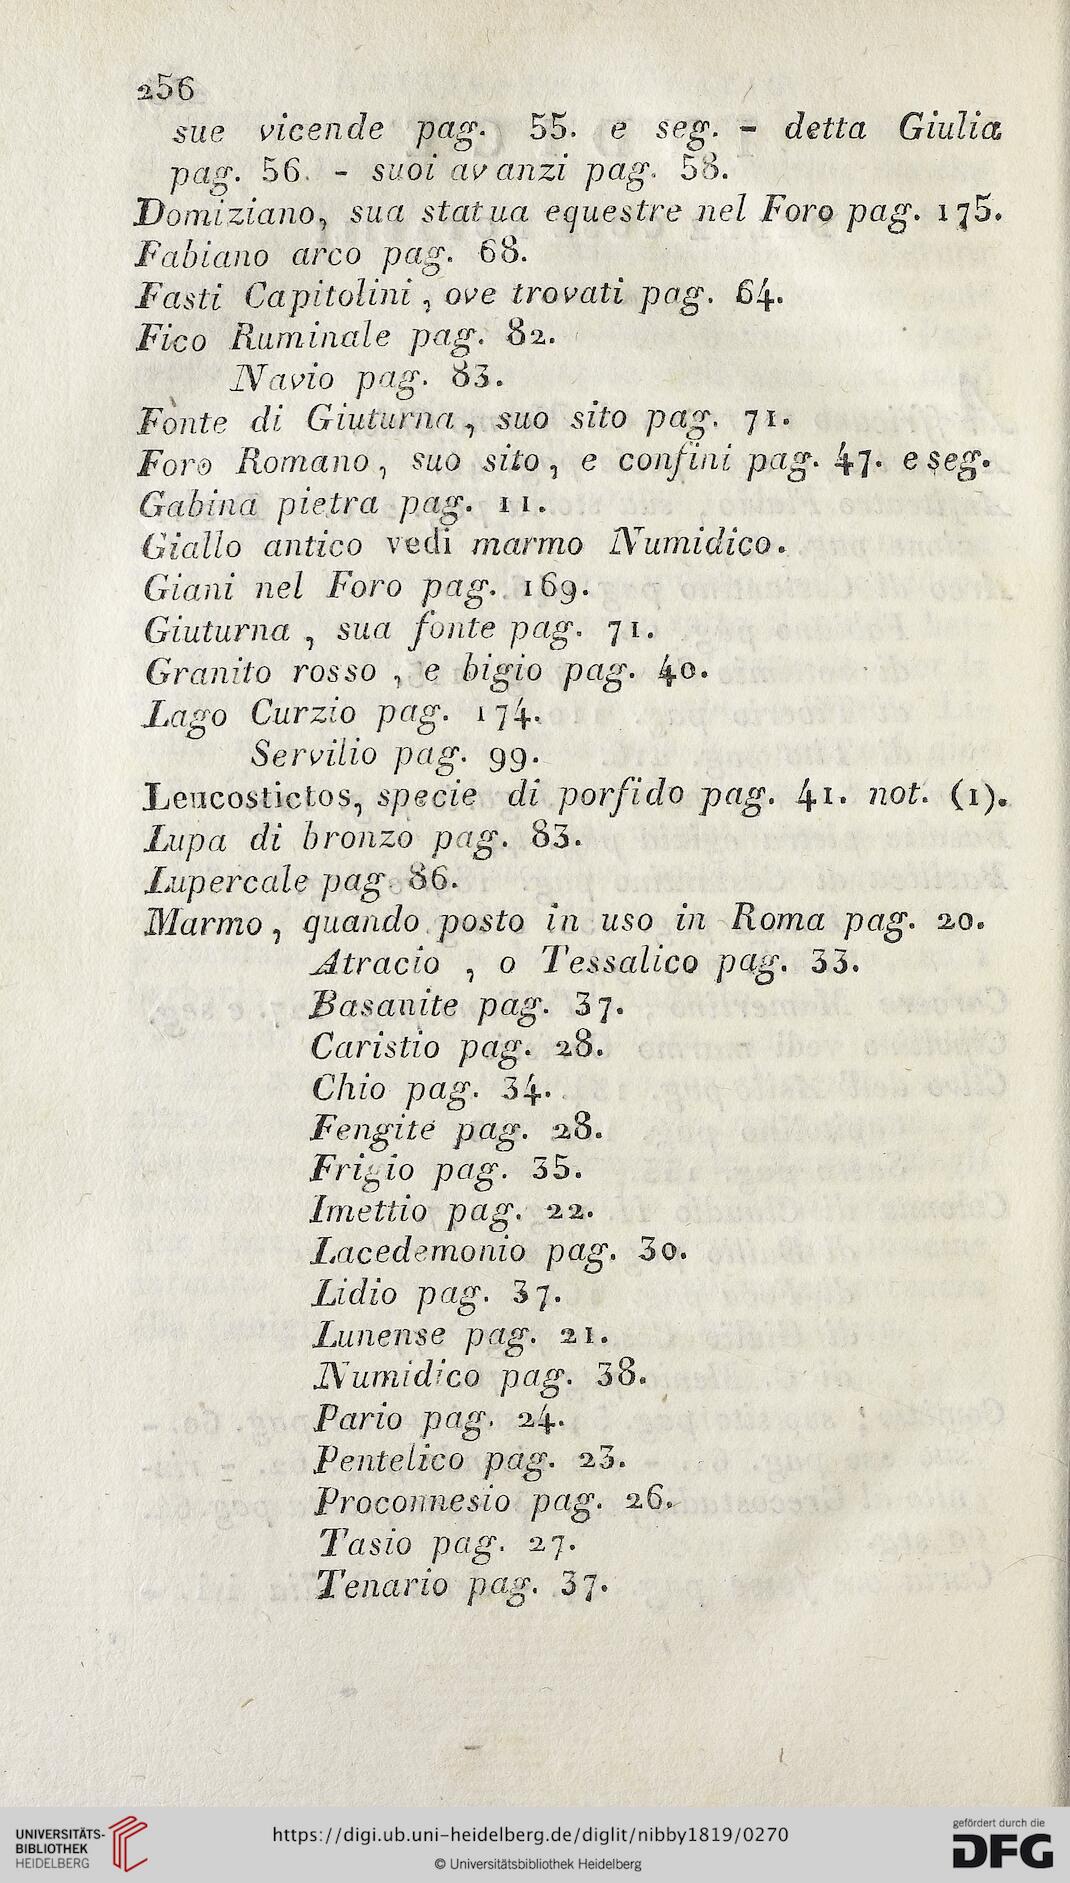 256
sue vicende pag. 55. e seg. - detta Giulia
pag. 56. - suoi avanzi pag. 58.
Domiziano, sua statua equestre nel Foro pag. 175.
Fabiano arco pag. 68.
Fasti Capitolini, ove trovati pag. 64.
Fico Ruminale pag. 82.
Navio pag. 83.
Fonte di Giuturna, suo sito pag. 71.
Foro Romano, suo sito, e confini pag. 47. e seg.
Gabina pietra pag. 11.
Giallo antico vedi marmo Numidico.
Giani nel Foro pag. 169.
Giuturna, sua fonte pag. 71.
Granito rosso, e bigio pag. 40.
Lago Curzio pag. 174.
Servilio pag. 99.
Leucostictos, specie di porfido pag. 41. not. (1).
Lupa di bronzo pag. 83.
Lupercale pag. 86.
Marmo, quando posto in uso in Roma pag. 20.
Atracio, o Tessalico pag. 33.
Basanite pag. 37.
Caristio pag. 28.
Chio pag. 34.
Fengite pag. 28.
Frigio pag. 35.
Imettio pag. 22.
Lacedemonio pag. 30.
Lidio pag. 37.
Lunense pag. 21.
Numidico pag. 38.
Pario pag. 24.
Pentelico pag. 23.
Proconnesio pag. 26.
Tasio pag. 27.
Tenario pag. 37.
UNIVERSITÄTS-
BIBLIOTHEK
HEIDELBERG
https://digi.ub.uni-heidelberg.de/diglit/nibby1819/0270
© Universitätsbibliothek Heidelberg
gefördert durch die
DFG